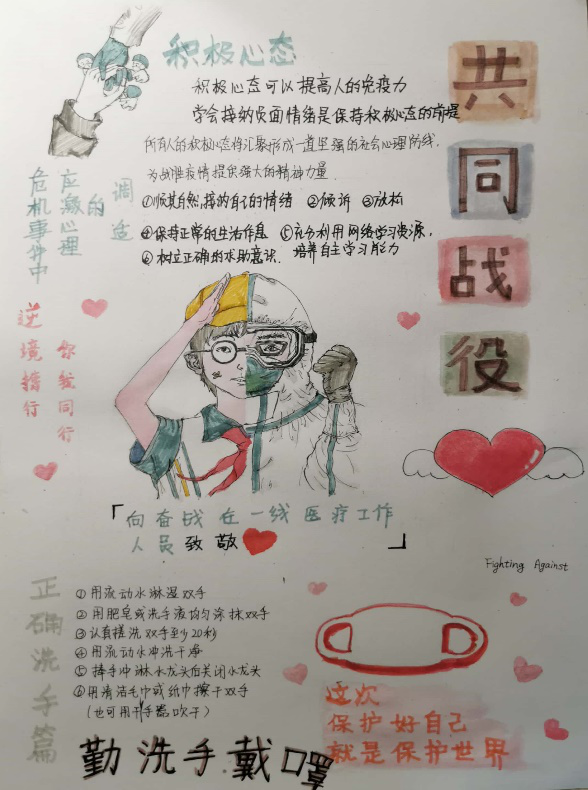 积极心态
积极心态可以提高人的免疫力
学会接纳负面情绪是保持积极心态的前提
所有人的积极心态将汇聚形成一道坚强的社会心理防线,
为战胜疫情提供强大的精神力量
①顺其自然,接纳自己的情绪 ②倾诉 ③放松
④保持正常的生活作息 ⑤充分利用网络学习资源,
培养自主学习能力
⑥树立正确的求助意识
共同战役
危机事件中
应激心理
的
调适
逆境携行
你我同行
「向奋战在一线医疗工作
人员致敬」
Fighting Against
正确洗手篇
①用流动水淋湿双手
②用肥皂或洗手液均匀涂抹双手
③认真搓洗双手至少20秒
④用流动水冲洗干净
⑤捧手冲淋水龙头后关闭水龙头
⑥用清洁毛巾或纸巾擦干双手
(也可用干手器吹干)
这次
保护好自己
就是保护世界
勤洗手戴口罩